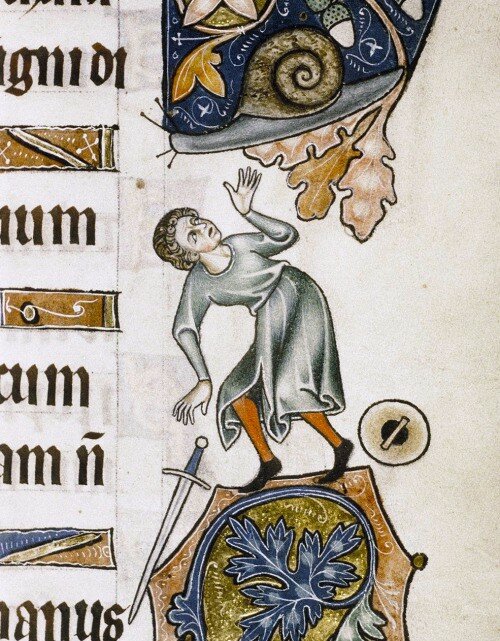 igni di
uum
cum
am n̄
manus